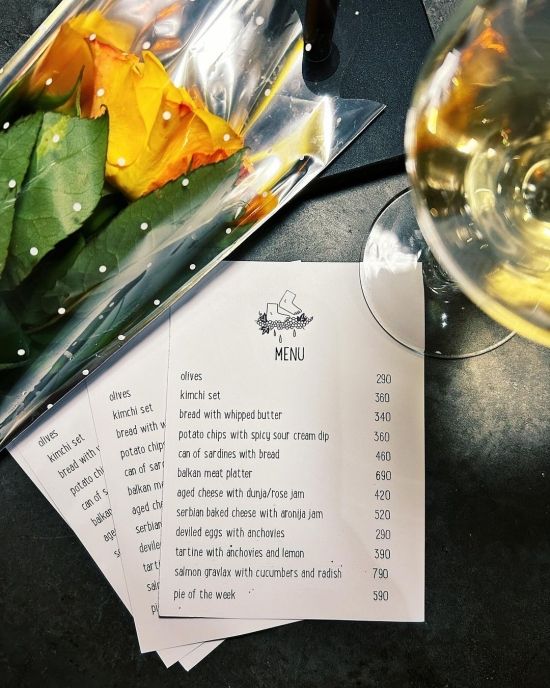 MENU
olives 290
kimchi set 360
bread with whipped butter 340
potato chips with spicy sour cream dip 360
can of sardines with bread 460
balkan meat platter 690
aged cheese with dunja/rose jam 420
serbian baked cheese with aronija jam 520
deviled eggs with anchovies 290
tartine with anchovies and lemon 390
salmon gravlax with cucumbers and radish 790
pie of the week 590
olives
kimchi set
bread with
potato chips
can of sard
balkan me
aged chees
serbian
deviled
tart
salm
pi
olives
kimchi set
bread with
potato chips
can of s
balkan
age
s